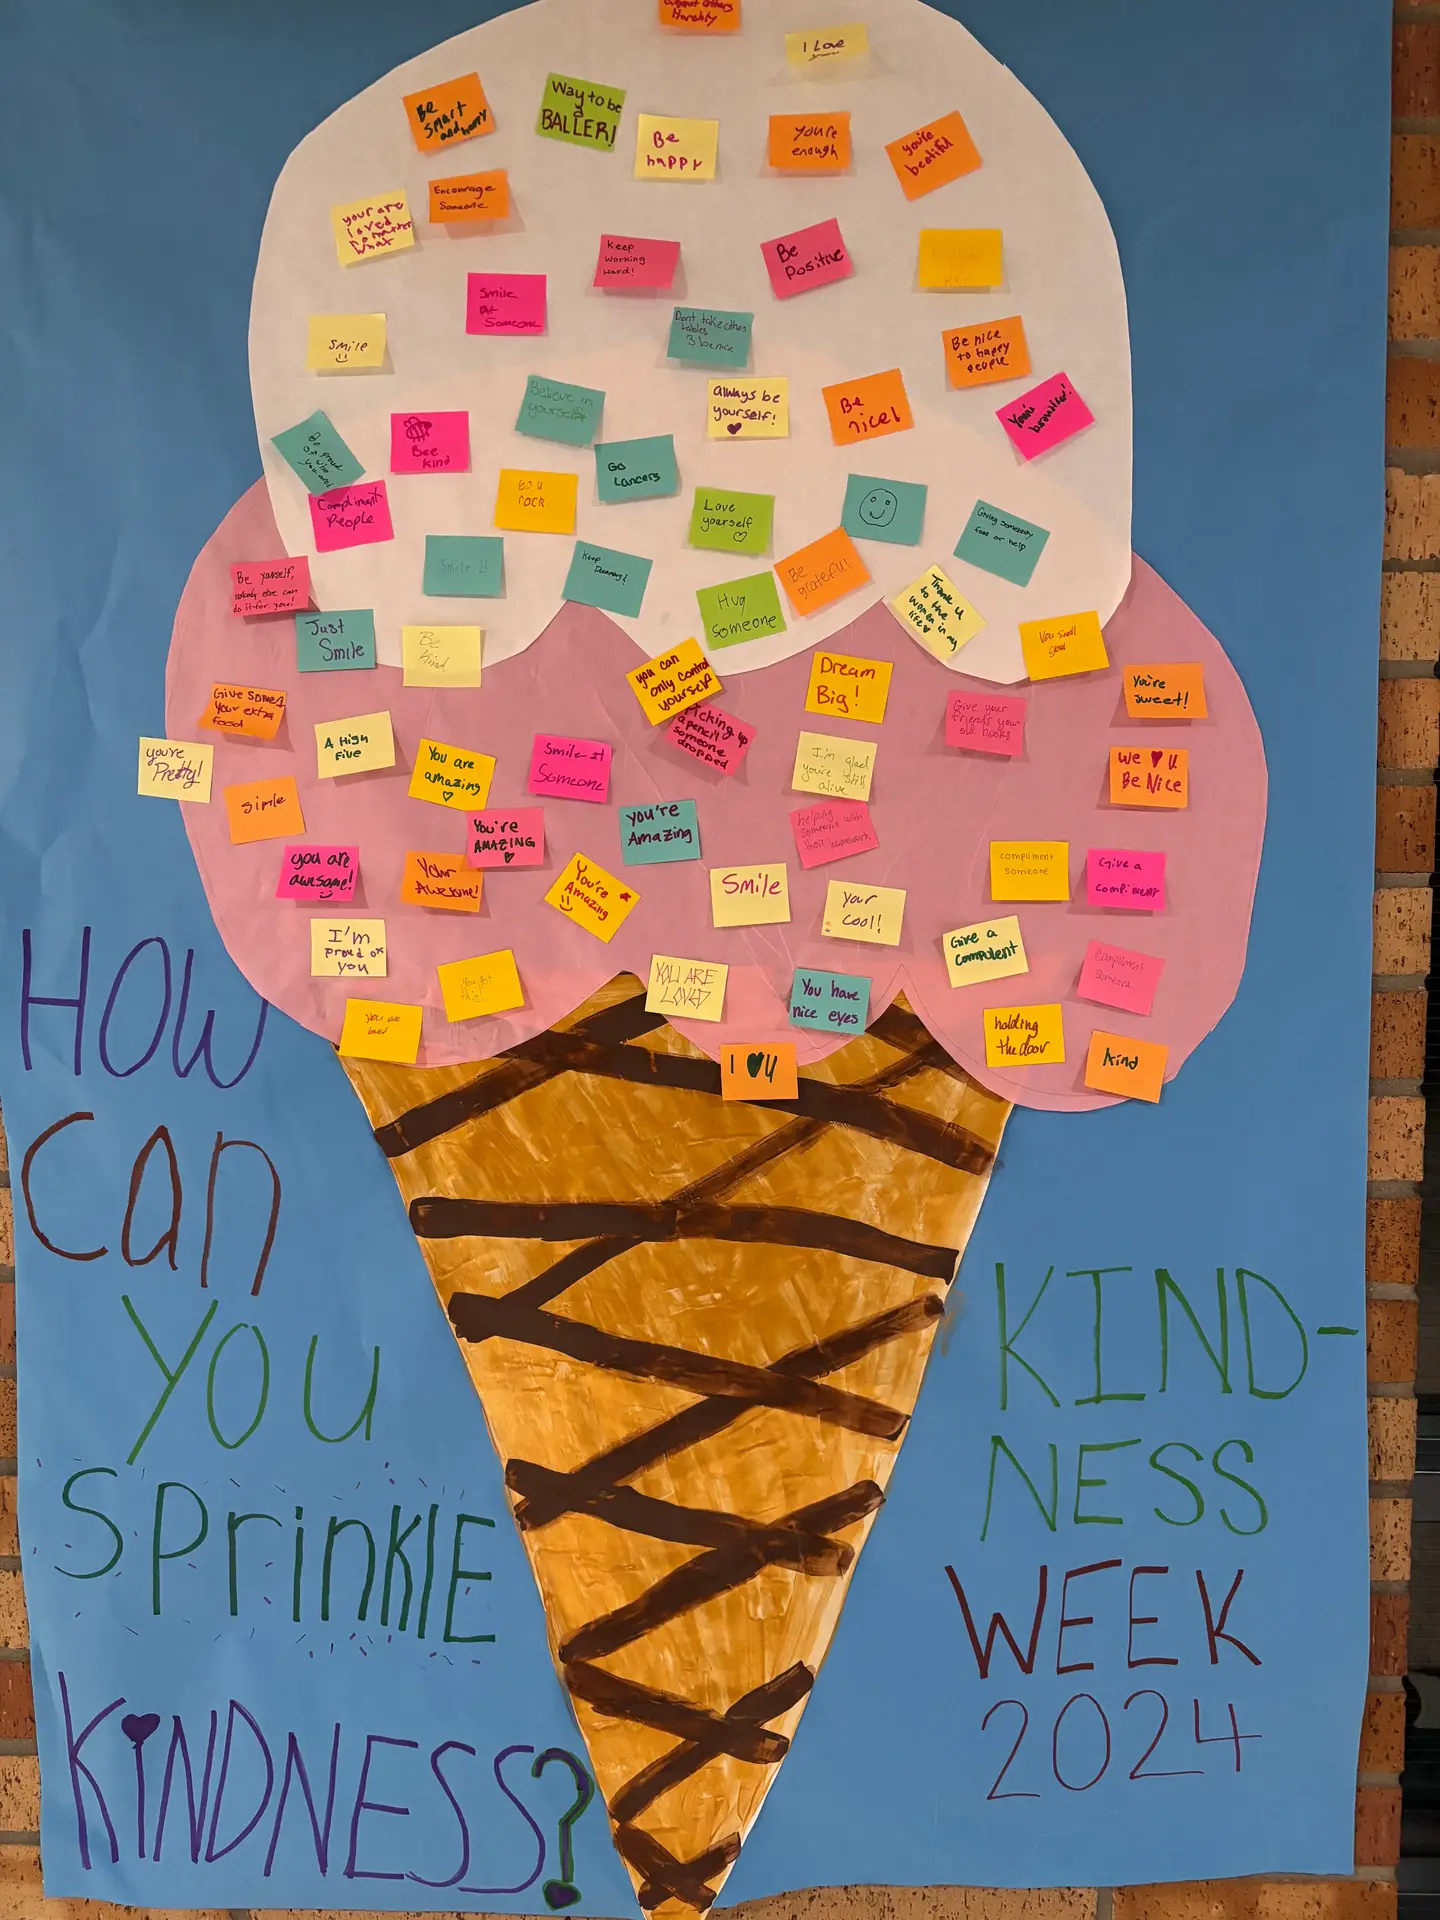 about others
Horably
I Love
you
Be
Smart
and happy
Way to be
a
BALLER!
Be
happy
You're
enough
you're
beatiful
Encourage
Someone
your are
loved
no matter
what
Keep
Working
Hard!
Be
Positive
Smile
At
Someone
Dont take others
tables
& be nice
Smile
Be nice
to happy
people
Believe in
yourself
always be
yourself!
Be
nice!
You're
Be proud
of who
you are!
Bee
kind
Go
Lancers
You
rock
Compliment
People
Love
yourself
Giving somebody
food or help
Smile
Keep
Dreaming!
Be
grateful
Be yourself,
nobody else can
do it for you!
Hug
Someone
Thank u
to the
women in my
life
Just
Smile
Be
Kind
You smell
good
you can
only control
yourself
Dream
Big!
You're
sweet!
Give some1
Your extra
food
Give your
friends your
old books
Picking up
a pencil
someone
dropped
A High
Five
you're
Pretty!
You are
amazing
Smile at
Someone
I'm glad
you're still
alive
we ♥ u
Be Nice
simle
You're
AMAZING
you're
Amazing
helping
someone with
their homework
you are
awesome!
Your
Awesome!
You're
Amazing
Smile
Your
cool!
compliment
someone
Give a
compliment
I'm
proud of
you
Give a
compulent
compliment
someone
you got
this!
YOU ARE
LOVED
You have
nice eyes
You are
loved
holding
the door
I ♥ U
kind
HOW
Can
YOU
SPrinKlE
KiNDNESS?
KIND-
NESS
WEEK
2024